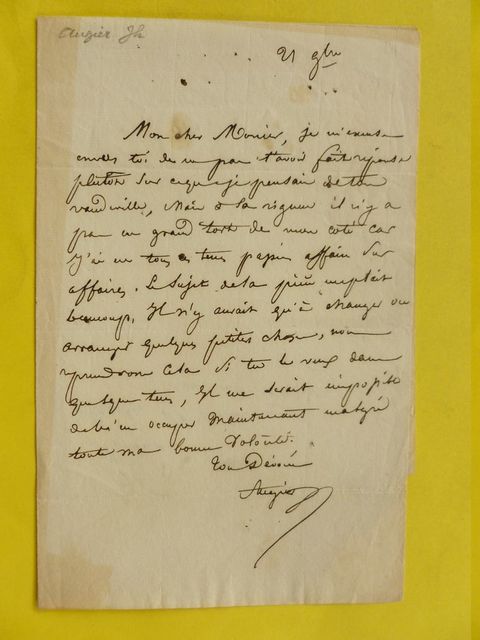 Augier Jh
21 9bre
Mon cher Monier, je m'excuse
envers toi de ne pas t'avoir fait réponse
plutôt sur ce que je pensais de ton
vaudeville, mais à la rigueur il n'y a
pas un grand tort de mon coté car
j'ai eu tous ces tems affaire sur
affaires. Le sujet de la pièce me plait
beaucoup, il n'y aurait qu'à changer ou
arranger quelques petites chose, nous
reprendrons cela si tu le veux dans
quelque tems, il me serait impossible
de m'en occuper maintenant malgré
toute ma bonne volonté.
Ton Dévoué
Augier